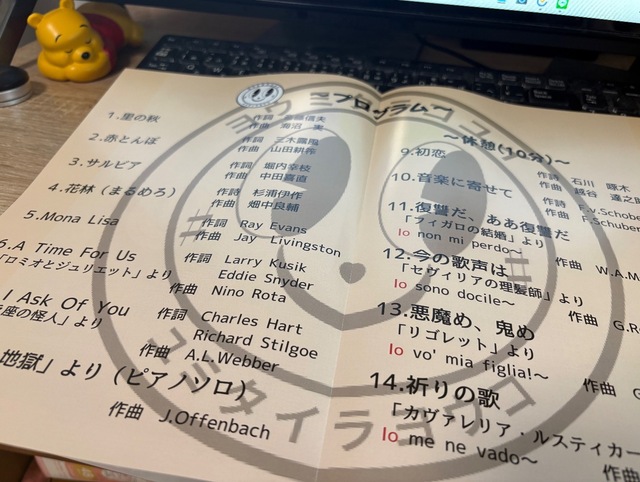 ～プログラム～
1.里の秋
作詞 斎藤信夫
作曲 海沼 実
2.赤とんぼ
作詞 三木露風
作曲 山田耕筰
3.サルビア
作詞 堀内幸枝
作曲 中田喜直
4.花林（まるめろ）
作詩 杉浦伊作
作曲 畑中良輔
5.Mona Lisa
作詞 Ray Evans
作曲 Jay Livingston
6.A Time For Us
「ロミオとジュリエット」より
作詞 Larry Kusik
Eddie Snyder
作曲 Nino Rota
I Ask Of You
座の怪人」より
作詞 Charles Hart
Richard Stilgoe
作曲 A.L.Webber
地獄」より（ピアノソロ）
作曲 J.Offenbach
～休憩(10分)～
9.初恋
作詩 石川 啄木
作曲 越谷 達之
10.音楽に寄せて
作詩 F.v.Schobe
作曲 F.Schuber
11.復讐だ、ああ復讐だ
「フィガロの結婚」より
Io non mi perdo～
作曲 W.A.M
12.今の歌声は
「セヴィリアの理髪師」より
Io sono docile～
作曲 G.Ro
13.悪魔め、鬼め
「リゴレット」より
Io vo' mia figlia!～
作曲 G
14.祈りの歌
「カヴァレリア・ルスティカー
Io me ne vado～
作曲
コミタイラヨウコ